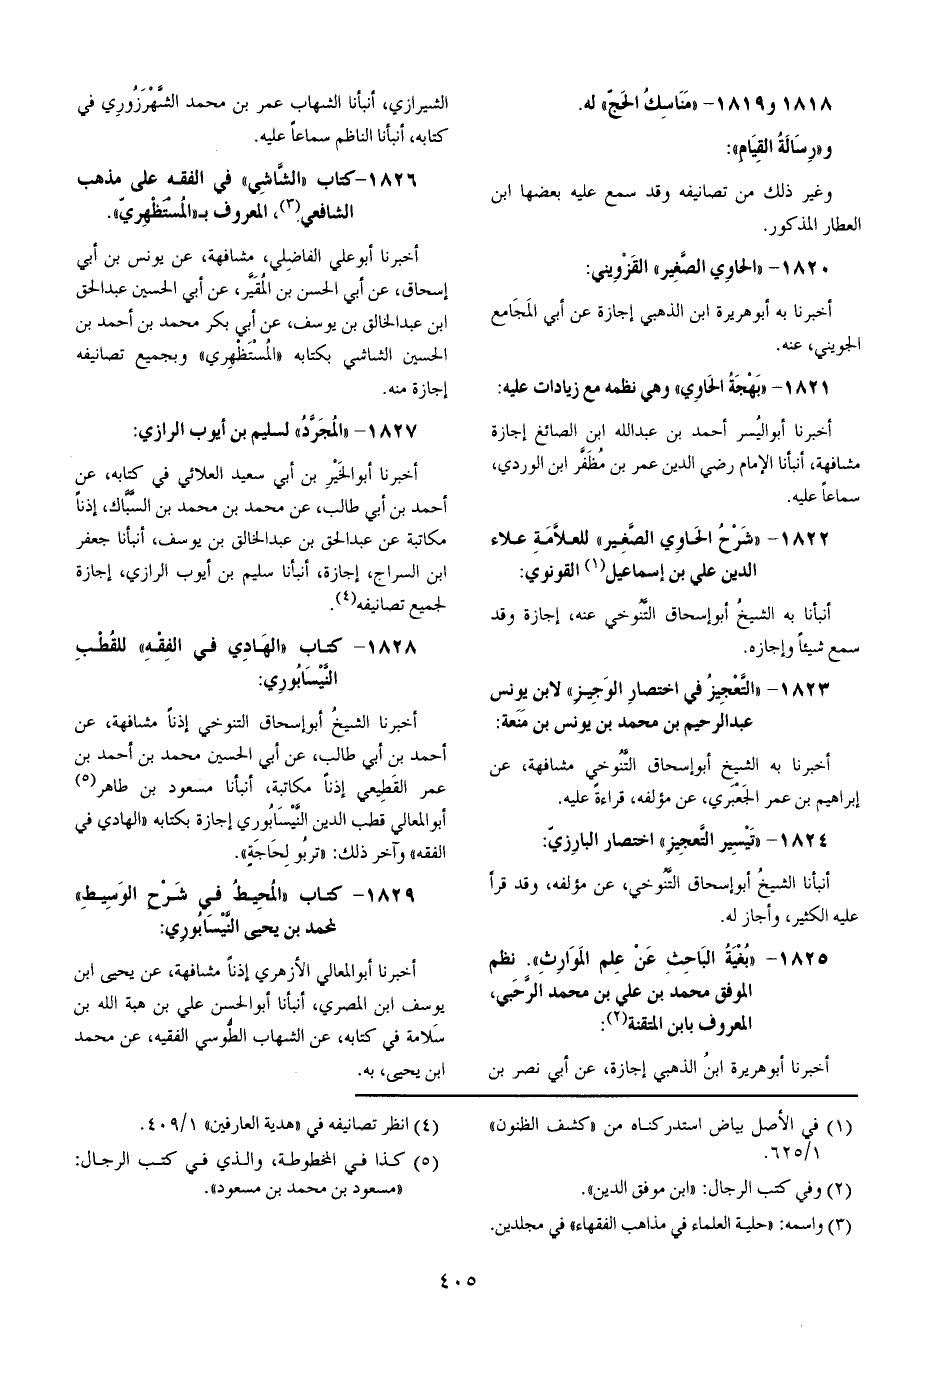 ١٨١٨ و١٨١٩- «مَنَاسِكُ الحَجِّ» له.
و«رِسَالَةُ القِيَامِ»:
وغير ذلك من تصانيفه وقد سمع عليه بعضها ابن
العطار المذكور.
١٨٢٠- «الحاوِي الصَّغِير» القَزْوِيني:
أخبرنا به أبوهريرة ابن الذهبي إجازة عن أبي المَجَامع
الجويني، عنه.
١٨٢١- «بَهْجَةُ الحَاوِي» وهي نظمه مع زيادات عليه:
أخبرنا أبواليُسر أحمد بن عبدالله ابن الصائغ إجازة
مشافهة، أنبأنا الإمام رضي الدين عمر بن مُظفَّر ابن الوردي،
سماعاً عليه.
١٨٢٢- «شَرْحُ الحَاوِي الصَّغِير» للعلاَّمَةِ علاء
الدين علي بن إسماعيل(١) القونوي:
أنبأنا به الشيخُ أبوإسحاق التَّنُوخي عنه، إجازة وقد
سمع شيئاً وإجازه.
١٨٢٣- «التَّعْجِيزُ في اختصارِ الوَجِيزِ» لابن يونس
عبدالرحيم بن محمد بن يونس بن مَنَعة:
أخبرنا به الشيخ أبوإسحاق التَّنُوخي مشافهة، عن
إبراهيم بن عمر الجَعْبَري، عن مؤلفه، قراءةً عليه.
١٨٢٤- «تَيْسِير التَّعجيز» اختصار البارِزيّ:
أنبأنا الشيخُ أبوإسحاق التَّنُوخي، عن مؤلفه، وقد قرأ
عليه الكثير، وأجاز له.
١٨٢٥- «بُغْيَةُ البَاحِثِ عَنْ عِلمِ المَوَارِثِ». نظم
الموفق محمد بن علي بن محمد الرَّحَبي،
المعروف بابن المتقنة(٢):
أخبرنا أبوهريرة ابنُ الذهبي إجازة، عن أبي نصر بن
الشيرازي، أنبأنا الشهاب عمر بن محمد الشَّهْرَزُورِي في
كتابه، أنبأنا الناظم سماعاً عليه.
١٨٢٦- كتاب «الشَّاشِي» في الفقه على مذهب
الشافعي(٣)، المعروف بـ«المُسْتَظْهِريّ».
أخبرنا أبوعلي الفاضلي، مشافهة، عن يونس بن أبي
إسحاق، عن أبي الحسن بن المُقَيَّر، عن أبي الحسين عبدالحق
ابن عبدالخالق بن يوسف، عن أبي بكر محمد بن أحمد بن
الحسين الشاشي بكتابه «المُسْتَظْهِري» وبجميع تصانيفه
إجازة منه.
١٨٢٧- «المُجَرَّدُ» لسليم بن أيوب الرازي:
أخبرنا أبوالخَيْرِ بن أبي سعيد العلائي في كتابه، عن
أحمد بن أبي طالب، عن محمد بن محمد بن السبَّاك، إذناً
مكاتبة عن عبدالحق بن عبدالخالق بن يوسف، أنبأنا جعفر
ابن السراج، إجازة، أنبأنا سليم بن أيوب الرازي، إجازة
لجميع تصانيفه(٤).
١٨٢٨- كتاب «الهَادِي في الفِقْهِ» للقُطْبِ
النَّيْسَابُوري:
أخبرنا الشيخُ أبوإسحاق التنوخي إذناً مشافهة، عن
أحمد بن أبي طالب، عن أبي الحسين محمد بن أحمد بن
عمر القَطِيعي إذناً مكاتبة، أنبأنا مسعود بن طاهر(٥)
أبوالمعالي قطب الدين النَّيْسَابُوري إجازة بكتابه «الهادي في
الفقه» وآخر ذلك: «تربُو لِحَاجَةٍ».
١٨٢٩- كتاب «المُحِيطُ في شَرْحِ الوَسِيطِ»
لمحمد بن يحيى النَّيْسَابُوري:
أخبرنا أبوالمعالي الأزهري إذناً مشافهة، عن يحيى ابن
يوسف ابن المصري، أنبأنا أبوالحسن علي بن هبة الله بن
سَلَامة في كتابه، عن الشهاب الطُّوسي الفقيه، عن محمد
ابن يحيى، به.
(١) في الأصل بياض استدركناه من «كشف الظنون»
١/٦٢٥.
(٢) وفي كتب الرجال: «ابن موفق الدين».
(٣) واسمه: «حلية العلماء في مذاهب الفقهاء» في مجلدين.
(٤) انظر تصانيفه في «هدية العارفين» ١/٤٠٩.
(٥) كذا في المخطوطة، والذي في كتب الرجال:
«مسعود بن محمد بن مسعود».
٤٠٥